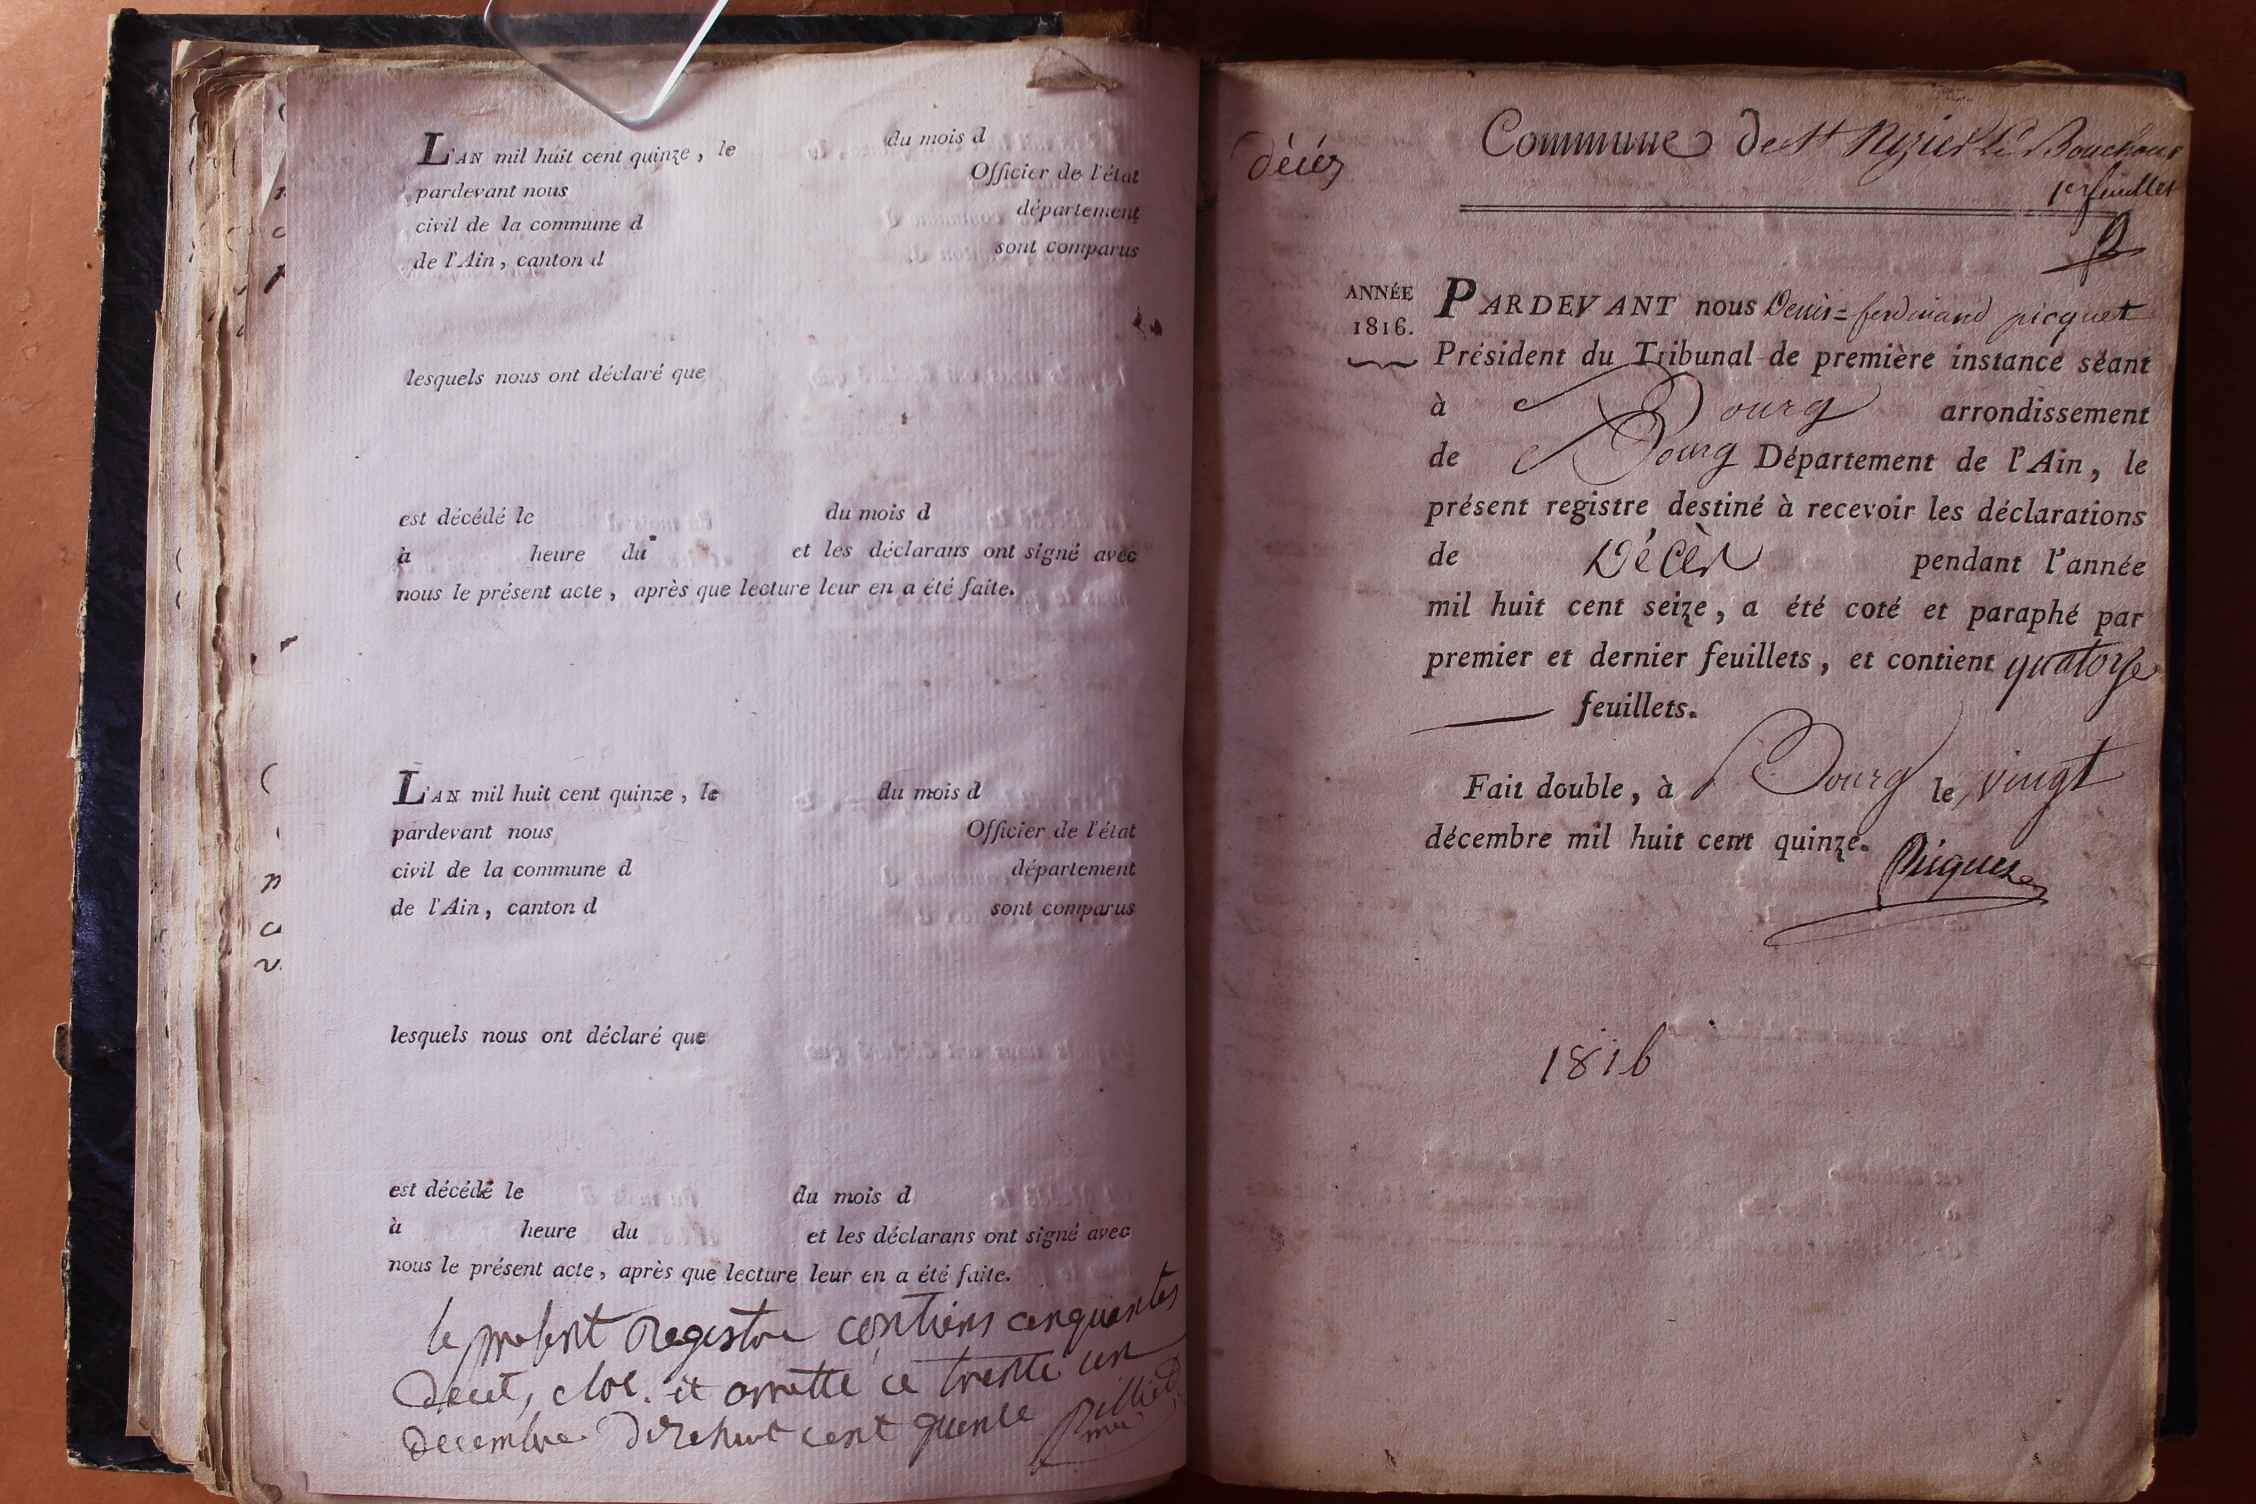 L'AN mil huit cent quinze, le du mois d
pardevant nous Officier de l'état
civil de la commune d département
de l'Ain, canton d sont comparus
lesquels nous ont déclaré que
est décédé le du mois d
à heure du et les déclarans ont signé avec
nous le présent acte, après que lecture leur en a été faite.
L'AN mil huit cent quinze, le du mois d
pardevant nous Officier de l'état
civil de la commune d département
de l'Ain, canton d sont comparus
lesquels nous ont déclaré que
est décédé le du mois d
à heure du et les déclarans ont signé avec
nous le présent acte, après que lecture leur en a été faite.
le present Registre contiens cinquantes
decet, clos. et arretté ce trente un
decembre dixehuit cent quense
décés
Commune de St Nizier le Bouchoux
1er feuillet
ANNÉE
1816.
PARDEVANT nous Denis=ferdinand picquet
Président du Tribunal de première instance séant
à Bourg arrondissement
de Bourg Département de l'Ain, le
présent registre destiné à recevoir les déclarations
de Décès pendant l'année
mil huit cent seize, a été coté et paraphé par
premier et dernier feuillets, et contient quatorze
feuillets.
Fait double, à Bourg le vingt
décembre mil huit cent quinze.
Picquet
1816